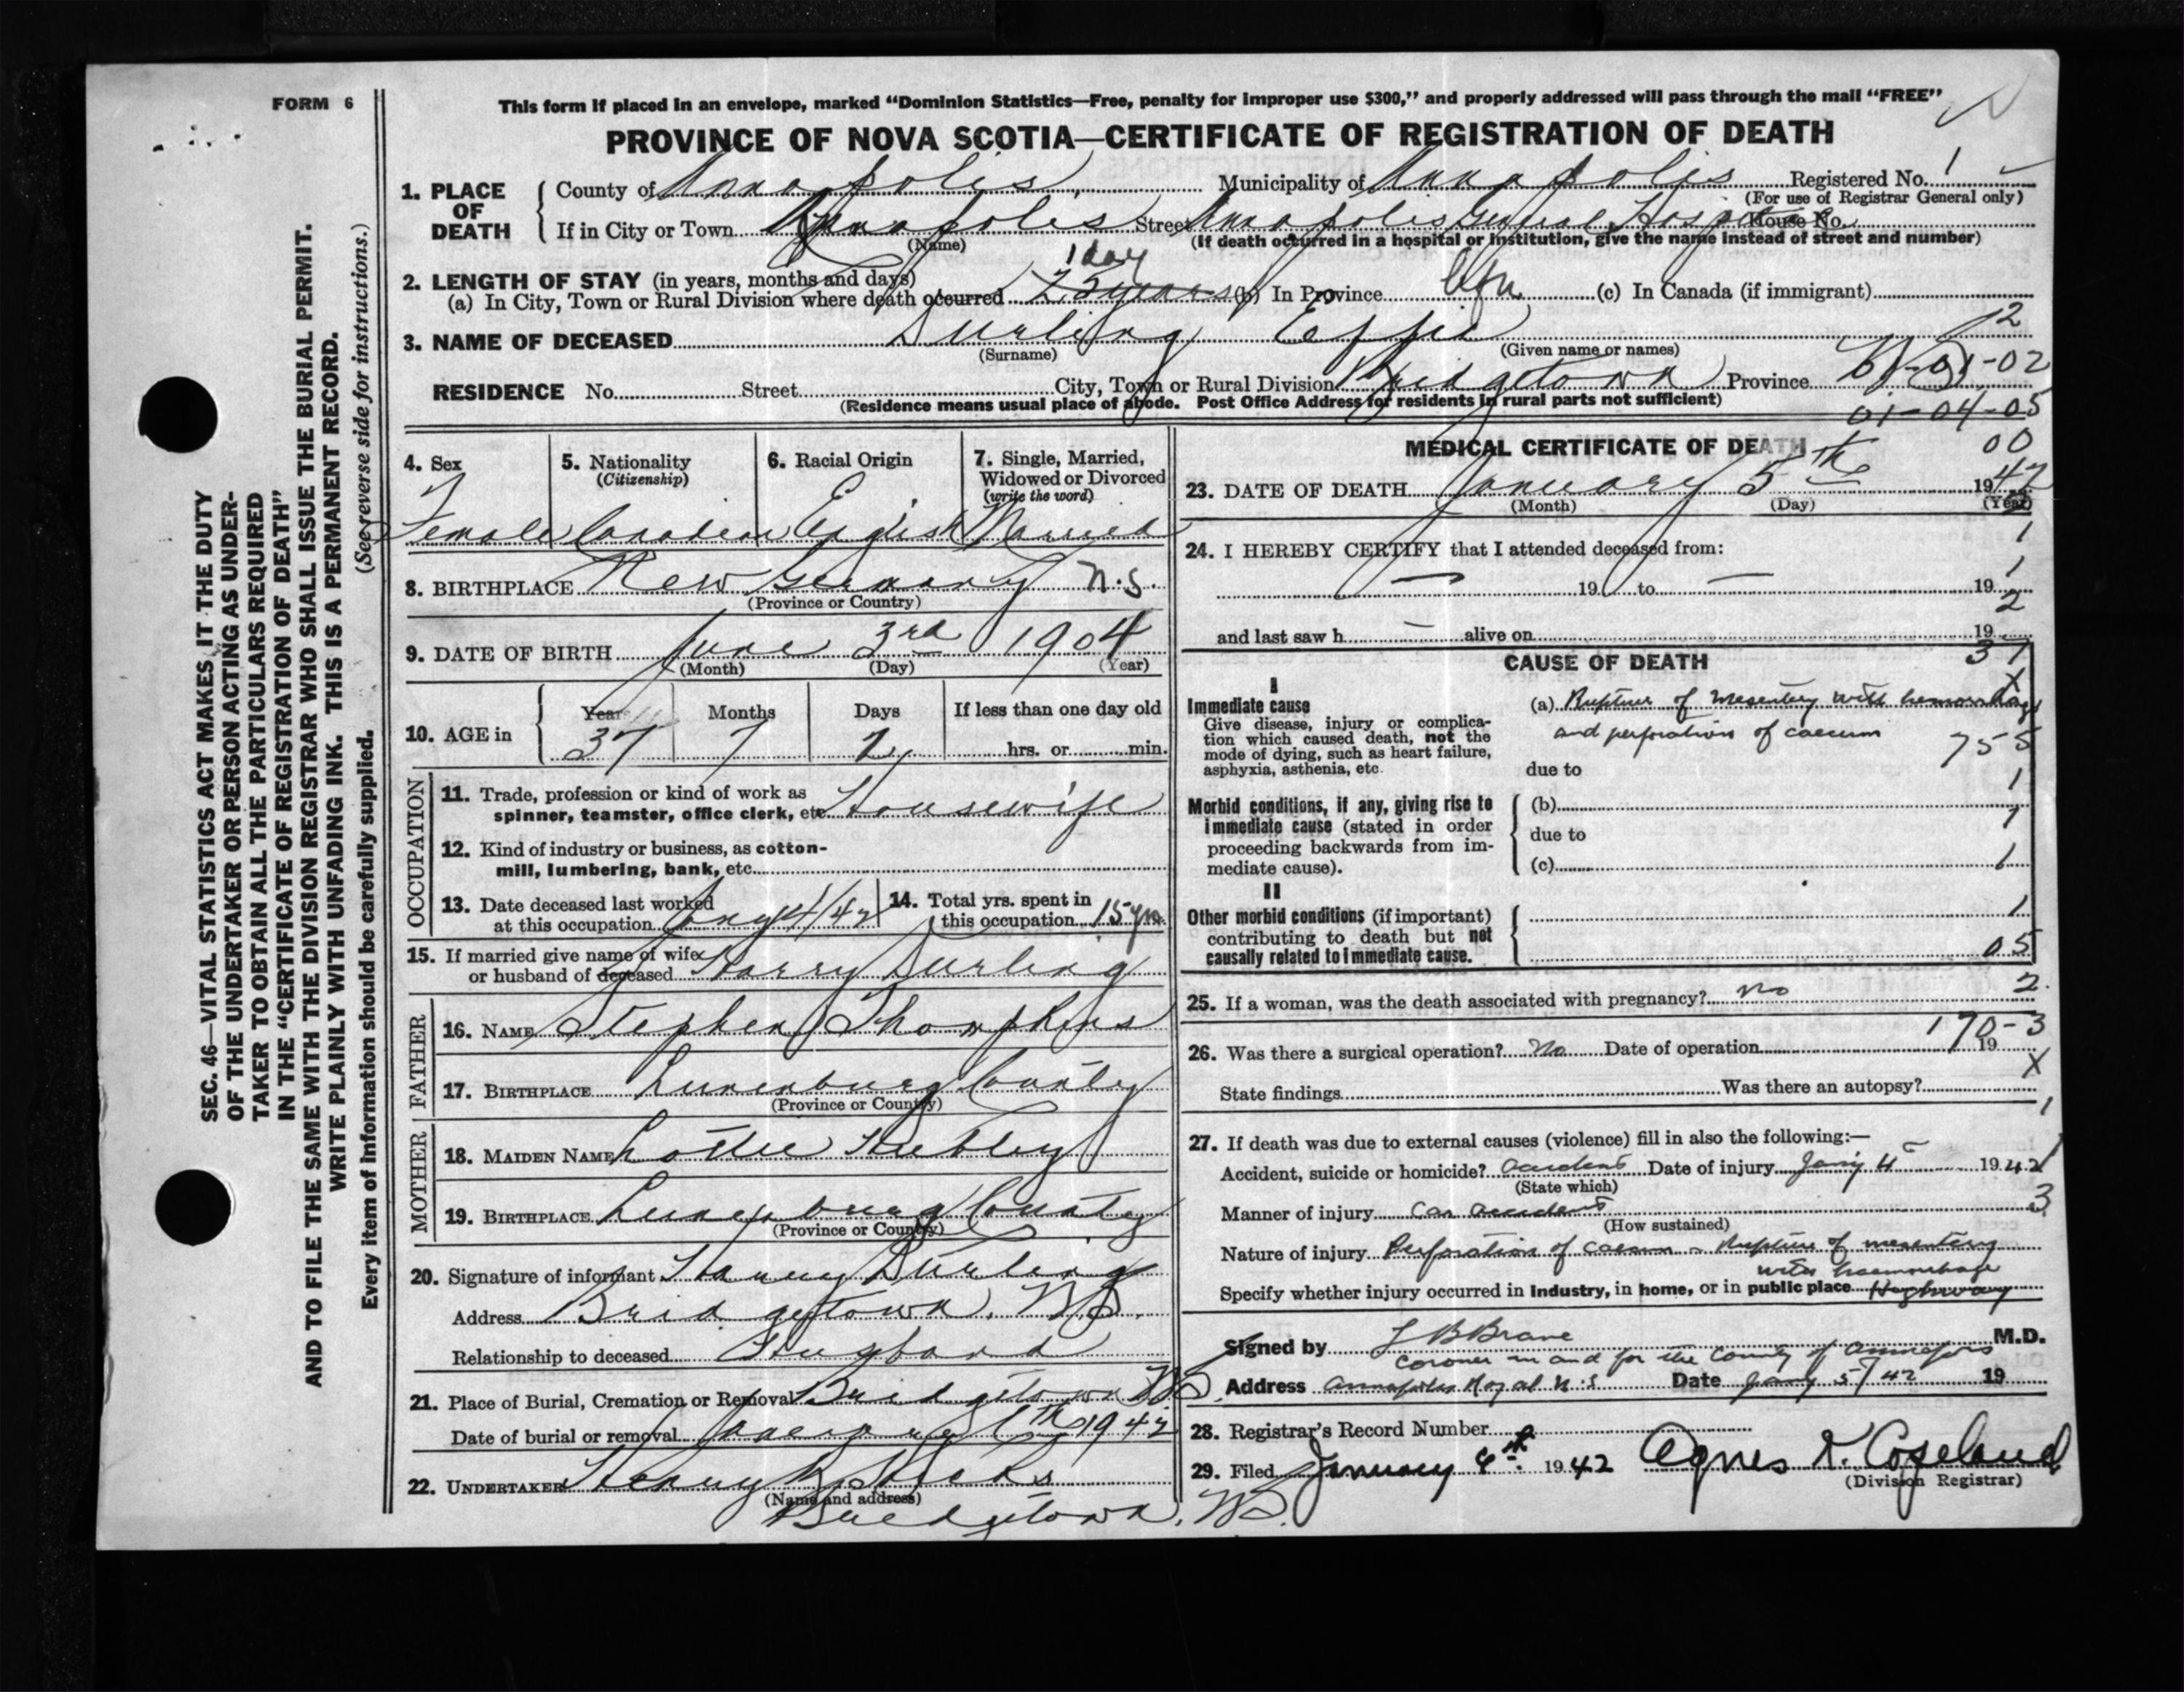 FORM 6
This form if placed in an envelope, marked “Dominion Statistics—Free, penalty for improper use $300,” and properly addressed will pass through the mail “FREE”
PROVINCE OF NOVA SCOTIA—CERTIFICATE OF REGISTRATION OF DEATH
SEC. 46—VITAL STATISTICS ACT MAKES IT THE DUTY
OF THE UNDERTAKER OR PERSON ACTING AS UNDER-
TAKER TO OBTAIN ALL THE PARTICULARS REQUIRED
IN THE “CERTIFICATE OF REGISTRATION OF DEATH”
AND TO FILE THE SAME WITH THE DIVISION REGISTRAR WHO SHALL ISSUE THE BURIAL PERMIT.
WRITE PLAINLY WITH UNFADING INK. THIS IS A PERMANENT RECORD.
Every item of information should be carefully supplied. (See reverse side for instructions.)
1. PLACE OF DEATH
County of Annapolis Municipality of Annapolis Registered No. 1
(For use of Registrar General only)
If in City or Town Annapolis Street Annapolis General Hospital House No.
(Name) (If death occurred in a hospital or institution, give the name instead of street and number)
1 day
2. LENGTH OF STAY (in years, months and days)
(a) In City, Town or Rural Division where death occurred years (b) In Province life (c) In Canada (if immigrant)
12
3. NAME OF DECEASED Durling Effie
(Surname) (Given name or names)
RESIDENCE No. Street City, Town or Rural Division Bridgetown Province
-02
(Residence means usual place of abode. Post Office Address for residents in rural parts not sufficient)
01-04-05
4. Sex Female
5. Nationality (Citizenship) Canadian
6. Racial Origin English
7. Single, Married, Widowed or Divorced (write the word) Married
8. BIRTHPLACE New Germany N.S.
(Province or Country)
9. DATE OF BIRTH June 3rd 1904
(Month) (Day) (Year)
10. AGE in Years Months Days If less than one day old
37 7 2 hrs. or min.
OCCUPATION
11. Trade, profession or kind of work as
spinner, teamster, office clerk, etc. Housewife
12. Kind of industry or business, as cotton-
mill, lumbering, bank, etc.
13. Date deceased last worked
at this occupation Jany 4/42
14. Total yrs. spent in
this occupation 15 yrs.
15. If married give name of wife
or husband of deceased Harry Durling
FATHER
16. NAME Stephen Thompkins
17. BIRTHPLACE Lunenburg County
(Province or Country)
MOTHER
18. MAIDEN NAME Lottie Hubley
19. BIRTHPLACE Lunenburg County
(Province or Country)
20. Signature of informant Harry Durling
Address Bridgetown, N.S.
Relationship to deceased Husband
21. Place of Burial, Cremation or Removal Bridgetown NS
Date of burial or removal January th 1942
22. UNDERTAKER Henry B. Hicks
(Name and address)
Bridgetown, NS.
MEDICAL CERTIFICATE OF DEATH
00
23. DATE OF DEATH January 5th 1942
(Month) (Day) (Year)
1
24. I HEREBY CERTIFY that I attended deceased from:
1
— 19 to — 19
2
and last saw h — alive on 19
37
CAUSE OF DEATH
X
I
Immediate cause
Give disease, injury or complica-
tion which caused death, not the
mode of dying, such as heart failure,
asphyxia, asthenia, etc.
(a) Rupture of mesentery with hemorrhage
and perforation of caecum
755
due to
1
Morbid conditions, if any, giving rise to
immediate cause (stated in order
proceeding backwards from im-
mediate cause).
(b)
1
due to
(c)
1
II
Other morbid conditions (if important)
contributing to death but not
causally related to immediate cause.
1
05
25. If a woman, was the death associated with pregnancy? No 2
170-3
26. Was there a surgical operation? No Date of operation 19
X
State findings Was there an autopsy?
1
27. If death was due to external causes (violence) fill in also the following:—
Accident, suicide or homicide? accident Date of injury Jany 4 1942
(State which)
Manner of injury Car accident 3
(How sustained)
Nature of injury Perforation of caecum - Rupture of mesentery
with haemorrhage
Specify whether injury occurred in industry, in home, or in public place Highway
Signed by L B Brane M.D.
Coroner in and for the County of Annapolis
Address Annapolis Royal N.S Date Jany 5/42 19
28. Registrar’s Record Number
29. Filed January th 1942 Agnes K. Copeland
(Division Registrar)